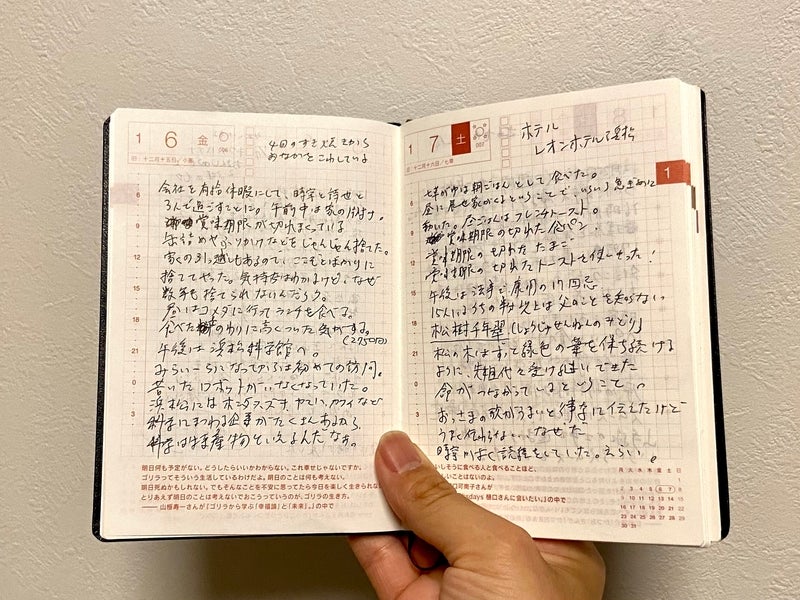 1 6 金
旧 十二月十五日／小寒
006
4日のすき焼きから
おなかをこわしているよ
会社を有給休暇にして、時実と詩世と
3人で過ごすことに。午前中は家の片付け。
賞味期限が切れまくっている
缶詰めやふりかけなどをじゃんじゃん捨てた。
家の引越しもあるので、ここぞとばかりに
捨ててやった。気持ちはわかるけど、なぜ
数年も捨てられないんだろう。
昼はコメダに行ってランチを食べる。
食べたわりに高くついた気がする。
(2750円)
午後は浜松科学館へ。
みらいーらになってからは初めての訪問。
昔いたロボットがいなくなっていた。
浜松にはホンダ、スズキ、ヤマハ、カワイなど
科学にまつわる企業がたくさんあるから
科学は生産物といえるんだなぁ。
明日何も予定がない。どうしたらいいかわからない。これ幸せじゃないですか。
ゴリラってそういう生活しているわけだよ。明日のことは何も考えない。
明日死ぬかもしれない。でもそんなことを不安に思ってたら今日を楽しく生きられな
とりあえず明日のことは考えないでおこうっていうのが、ゴリラの生き方。
—— 山極寿一さんが『ゴリラから学ぶ「幸福論」と「未来」。』の中で
1 7 土
旧 十二月十六日／七草
007
ホテル
レオンホテル浜松
1
七草がゆは朝ごはんとして食べた。
昼に展世家がくるということで、いろいろ急ぎめに
動いた。昼ごはんはフレンチトースト。
賞味期限の切れた食パン
賞味期限の切れたたまご
賞味期限の切れたトーストを使しまった！
午後は法事で、の17回忌
15人いるうちの約半分は父のことを知らない
松樹千年翠（しょうじゅせんねんのみどり）
松の木はずっと緑色の葉を保ち続ける
ように、先祖代々受け継いできた
命がつながっているということ。
おっさまの歌がうまいと律子に伝えたけど
うまく伝わらない…なぜだ
時実がよく読経をしていた。えらい。
いしそうに食べる人と食べることほど、
しいことはないのよ。
口可南子さんが
sdays 樋口さんに会いたい。』の中で
月 火 水 木 金 土 日
1
2 3 4 5 6 7 8
9 10 11 12 13 14 15
16 17 18 19 20 21 22
23 24 25 26 27 28 29
30 31